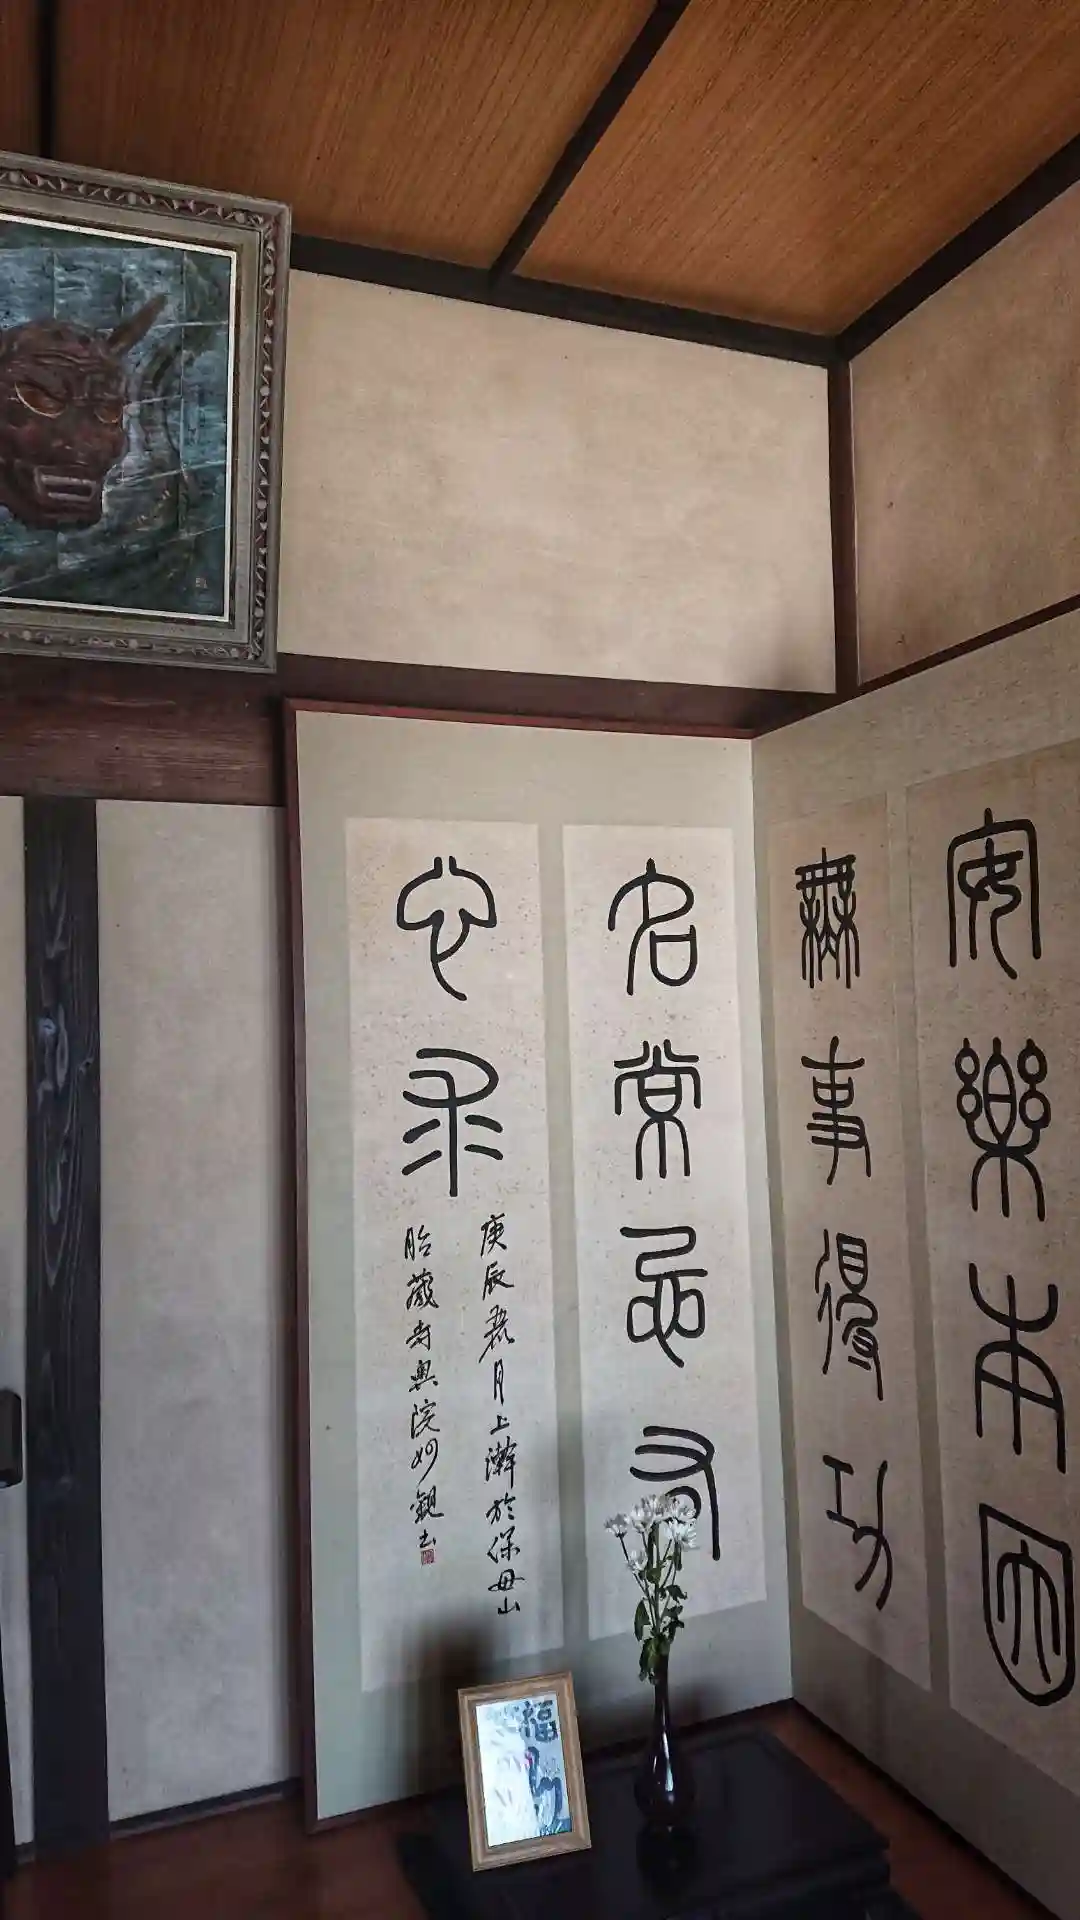 安樂本因
無事得功
名常忌
心求
庚辰月上澣於保母山
胎蔵寺奥院妙観書
福